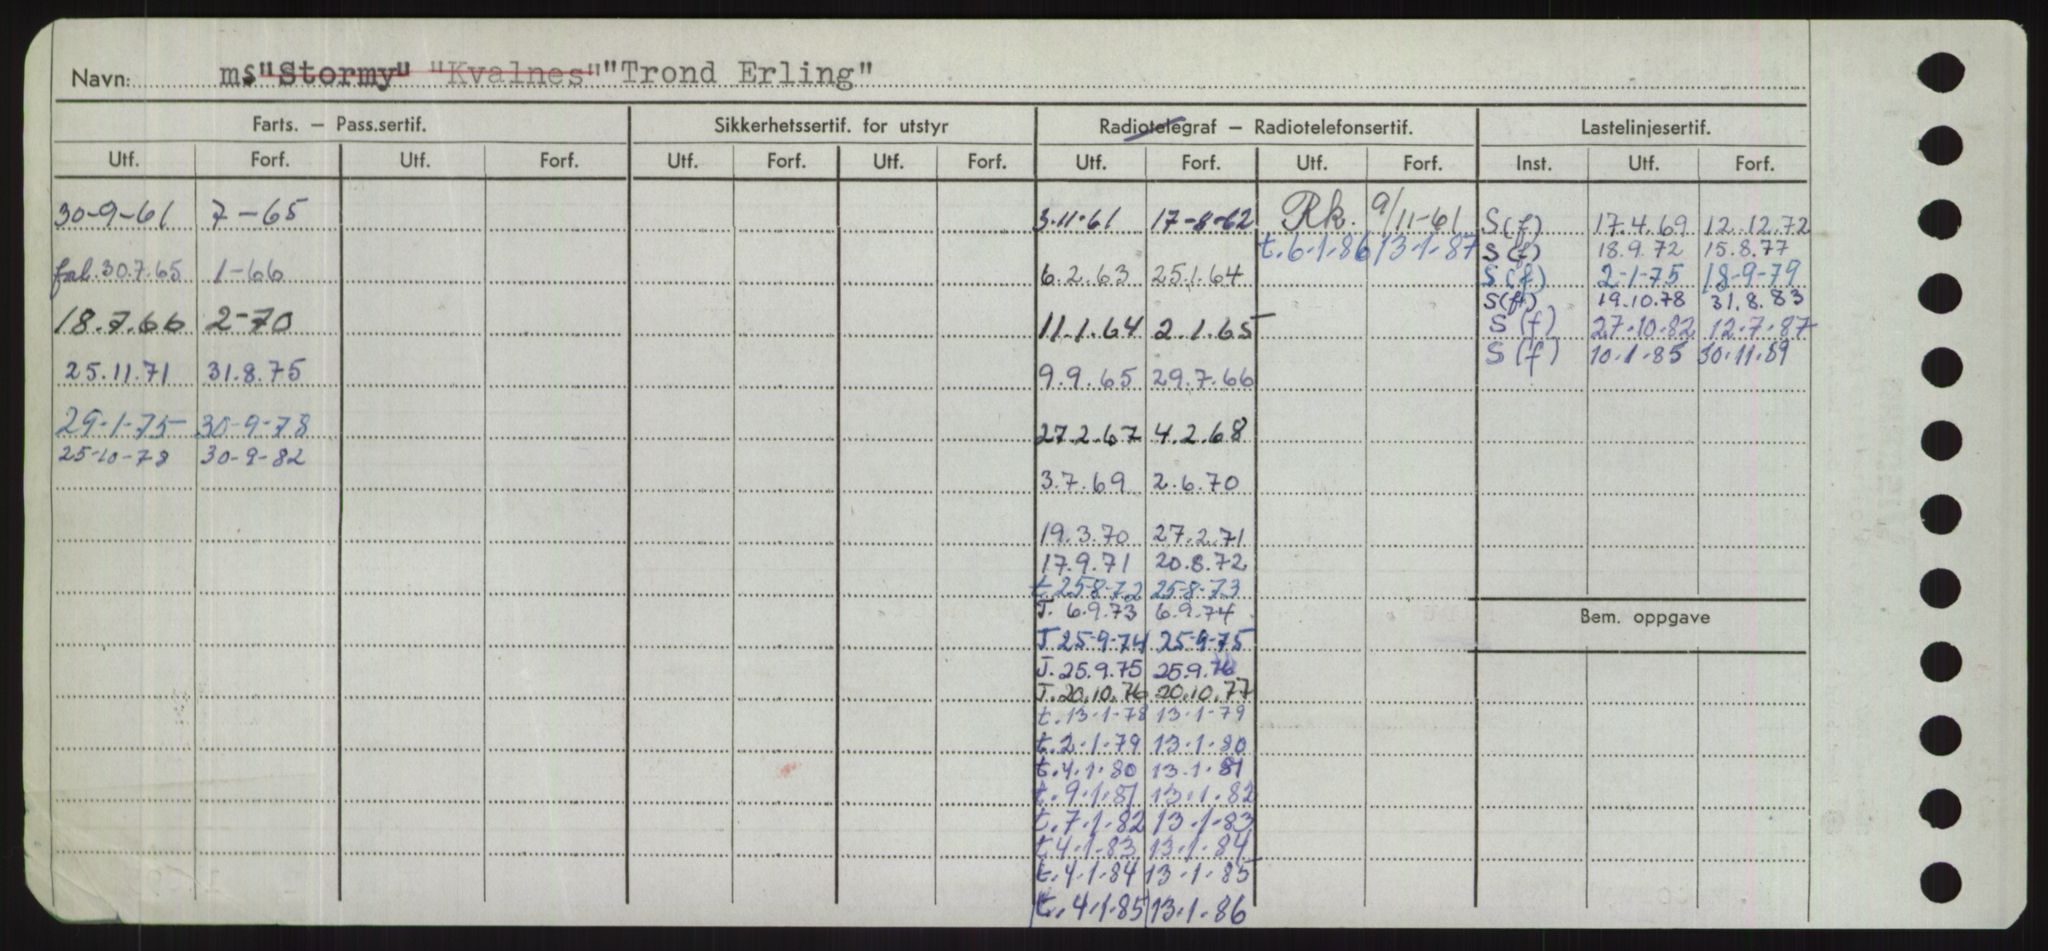 Navn: ms "Stormy" "Kvalnes" "Trond Erling"
Farts. – Pass.sertif. Sikkerhetssertif. for utstyr Radiotelegraf – Radiotelefonsertif. Lastelinjesertif.
Utf. Forf. Utf. Forf. Utf. Forf. Utf. Forf. Utf. Forf. Utf. Forf. Inst. Utf. Forf.
30-9-61 7-65 3.11.61 17-8-62 Rk. 9/11-61 S(f) 17.4.69 12.12.72
t.6-1-86 13-1-87 S(f) 18.9.72 15.8.77
fal.30.7.65 1-66 6.2.63 25.1.64 S(f) 2-1-75 18-9-79
S(f) 19.10.78 31.8.83
18.7.66 2-70 11.1.64 2.1.65 S(f) 27-10-82 12-7-87
S(f) 10-1-85 30-11-89
25.11.71 31.8.75 9.9.65 29.7.66
29-1-75 30-9-78 27.2.67 4.2.68
25-10-78 30-9-82
3.7.69 2.6.70
19.3.70 27.2.71
17.9.71 20.8.72
t.25-8-72 25-8-73
T. 6.9.73 6.9.74
T 25-9-74 25-9-75
T. 25.9.75 25.9.76
T.20.10.76 20.10.77
t.13-1-78 13-1-79
t.2-1-79 13-1-80
t.4.1.80 13.1.81
t.9-1-81 13-1-82
t.7-1-82 13-1-83
t 4-1-83 13-1-84
t.4.1.84 13-1-85
t.4-1-85 13-1-86
Bem. oppgave